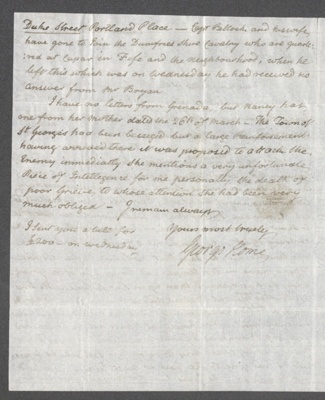 Duke Street Portland Place — Capt Pollock and his wife
have gone to Join the Dumfries Shire Cavalry who are quar
:ed at Cupar in Fife and the Neighbourhood, when he
left this which was on Wednesday he had received no
answer from Mr Bryan
I have no letters from Grenada but Nancy has
one from her Mother dated the 26th of March — The Town of
St Georges had been besieged but a large Reinforcement
having arrived there it was proposed to attack the
Enemy immediately She mentions a very unfortunate
Piece of Intelligence for me personally the death of
poor Greive to whose attention She had been very
much obliged — I remain always
Yours most truely
George Home
I sent you a bill for
£200 — on Wednesday